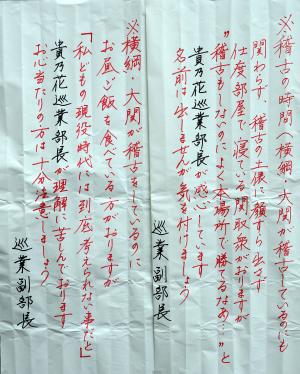 ※稽古の時間へ横綱、大関が稽古しているのにも
関わらず、稽古の土俵に顔すら出さず
仕度部屋で寝ている関取衆がおりますが
"稽古もしないのによく本場所で勝てるなあ…"と
貴乃花巡業部長が感心しています
名前は出しませんが気を付けましょう
巡業副部長
※横綱・大関が稽古をしているのに
お昼ご飯を食べている方がおりますが
「私どもの現役時代には到底考えられない事だと」
貴乃花巡業部長が理解に苦しんでおります
お心当たりの方は十分注意しましょう
巡業副部長